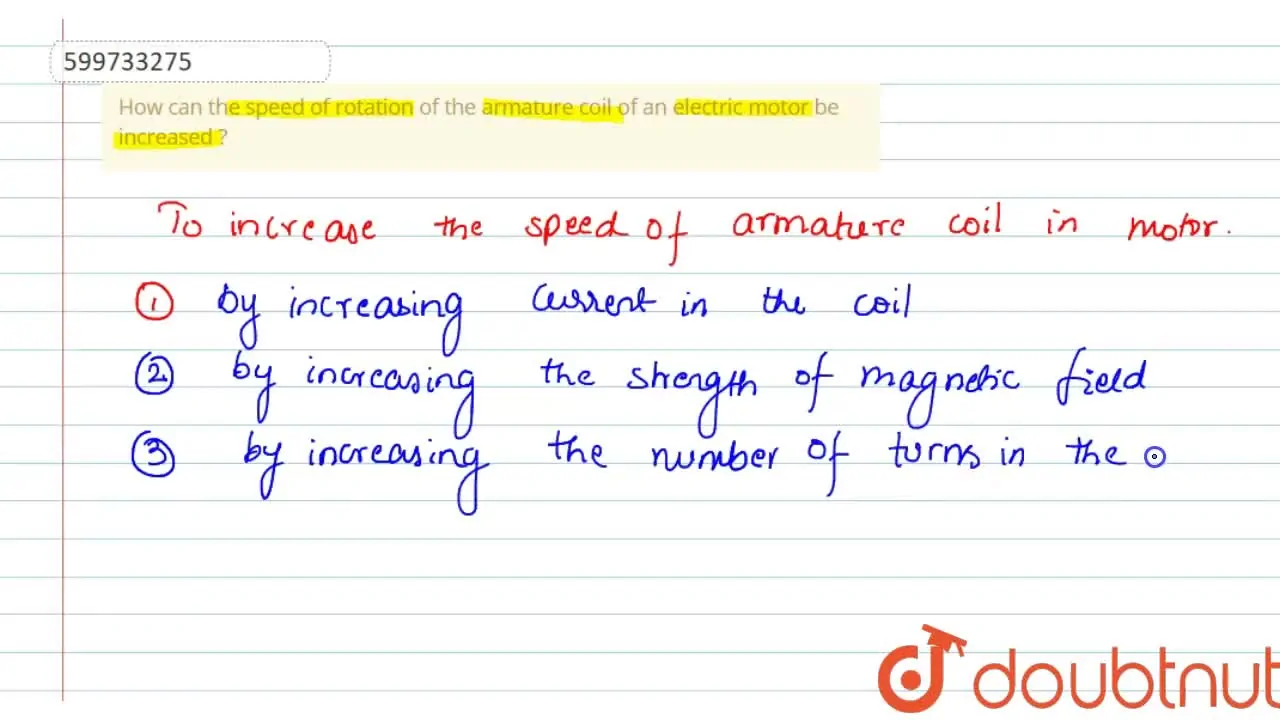 599733275
How can the speed of rotation of the armature coil of an electric motor be
increased ?
To increase the speed of armature coil in motor.
1 by increasing current in the coil
2 by increasing the strength of magnetic field
3 by increasing the number of turns in the
doubtnut